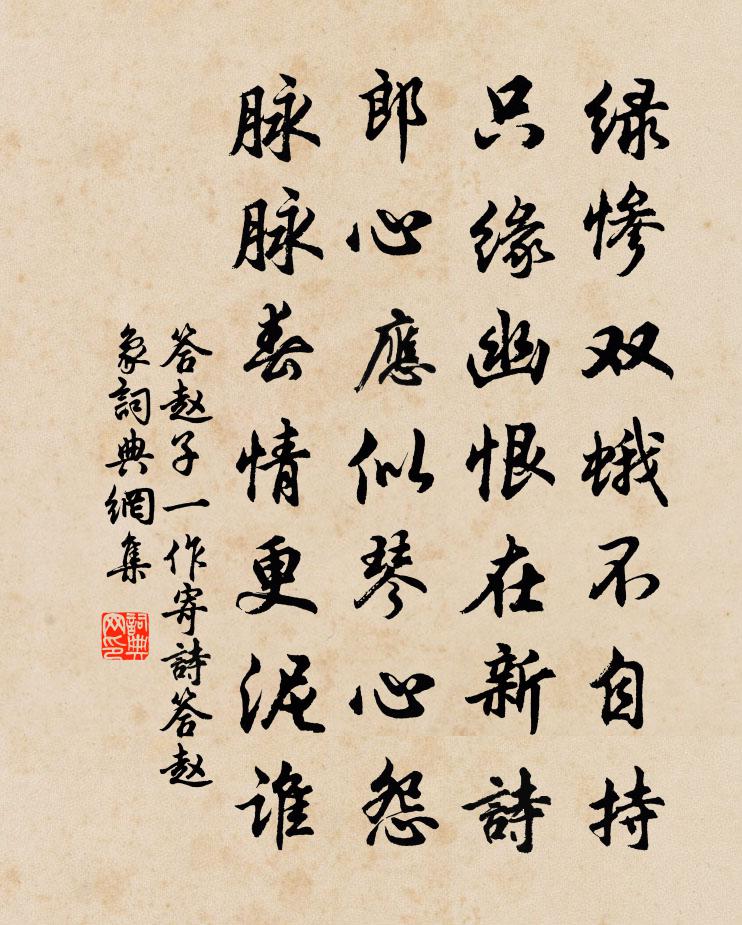 緑惨双蛾不自持
只缘幽恨在新詩
郎心應似琴心怨
脉脉春情更泥谁
答赵子一作寄詩答赵
象詞典網集
詞典網印